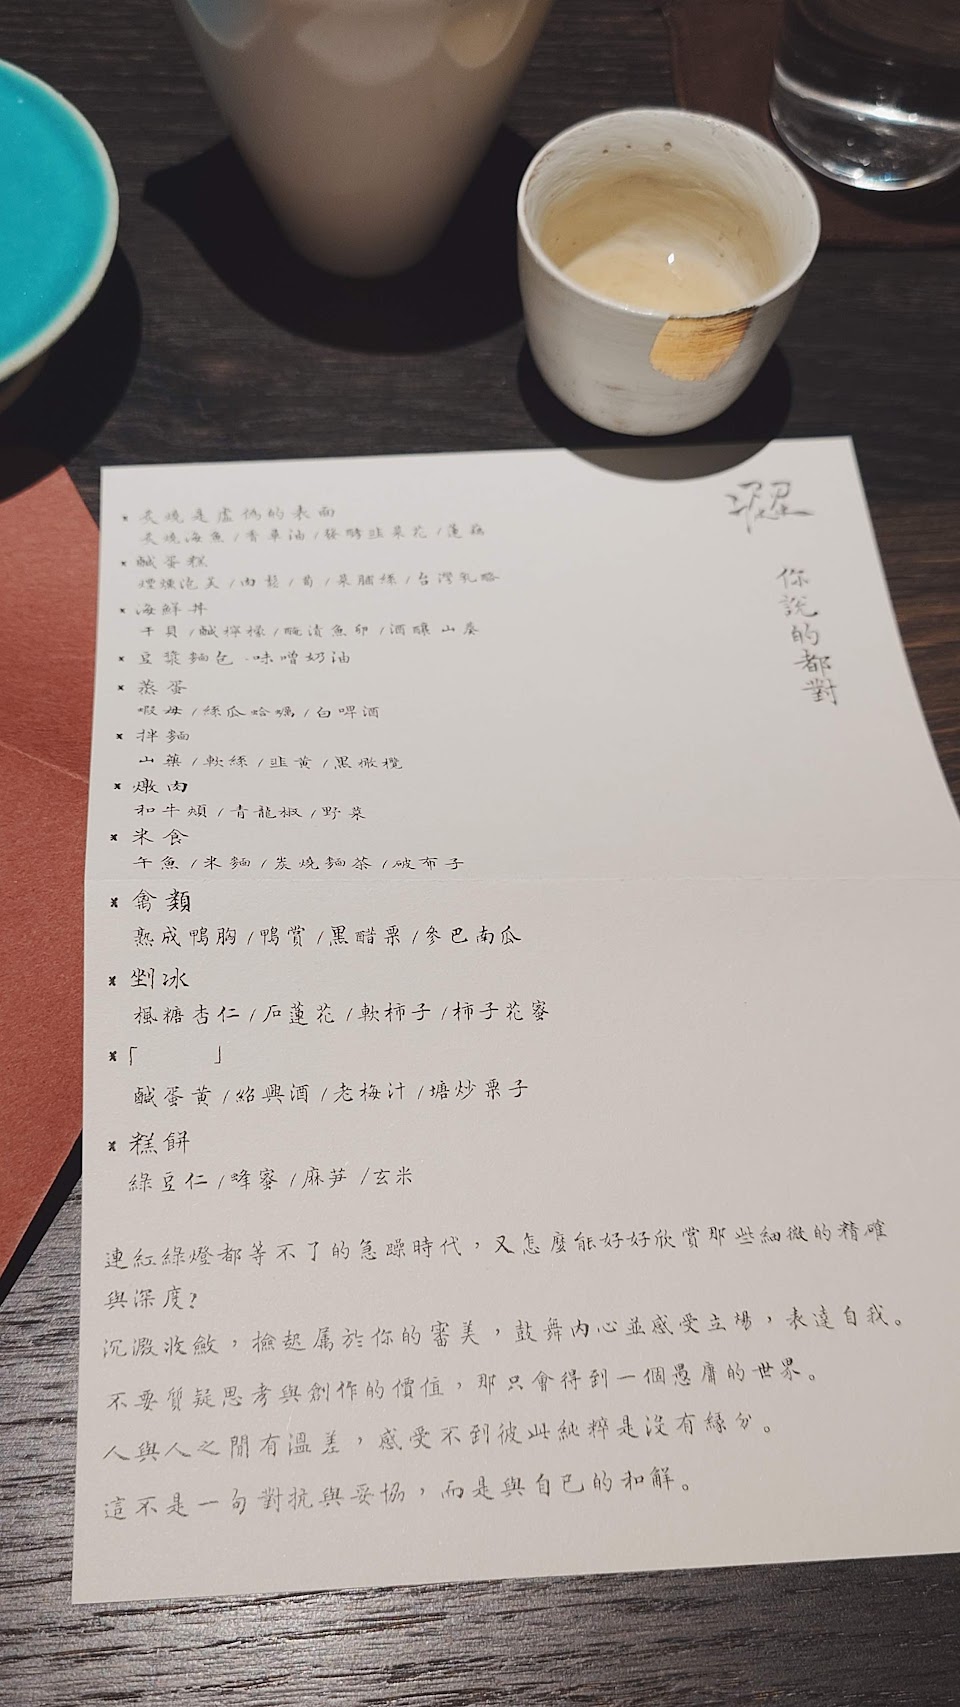 澀
你說的都對
× 炙燒是虛偽的表面
炙燒海魚/香草油/發酵韭菜花/蓮藕
× 鹹蛋糕
煙燻泡芙/肉鬆/筍/菜脯絲/台灣乳酪
× 海鮮丼
干貝/鹹檸檬/醃漬魚卵/酒釀山葵
× 豆漿麵包·味噌奶油
× 蒸蛋
蝦母/絲瓜蛤蠣/白啤酒
× 拌麵
山藥/軟絲/韭黃/黑橄欖
× 燉肉
和牛頰/青龍椒/野菜
× 米食
午魚/米麵/炭燒麵茶/破布子
× 禽類
熟成鴨胸/鴨賞/黑醋栗/參巴南瓜
× 剉冰
楓糖杏仁/石蓮花/軟柿子/柿子花蜜
×「 」
鹹蛋黃/紹興酒/老梅汁/塘炒栗子
× 糕餅
綠豆仁/蜂蜜/麻芛/玄米
連紅綠燈都等不了的急躁時代，又怎麼能好好欣賞那些細微的精確
與深度？
沉澱收斂，撿起屬於你的審美，鼓舞內心並感受立場，表達自我。
不要質疑思考與創作的價值，那只會得到一個愚庸的世界。
人與人之間有溫差，感受不到彼此純粹是沒有緣分。
這不是一句對抗與妥協，而是與自己的和解。